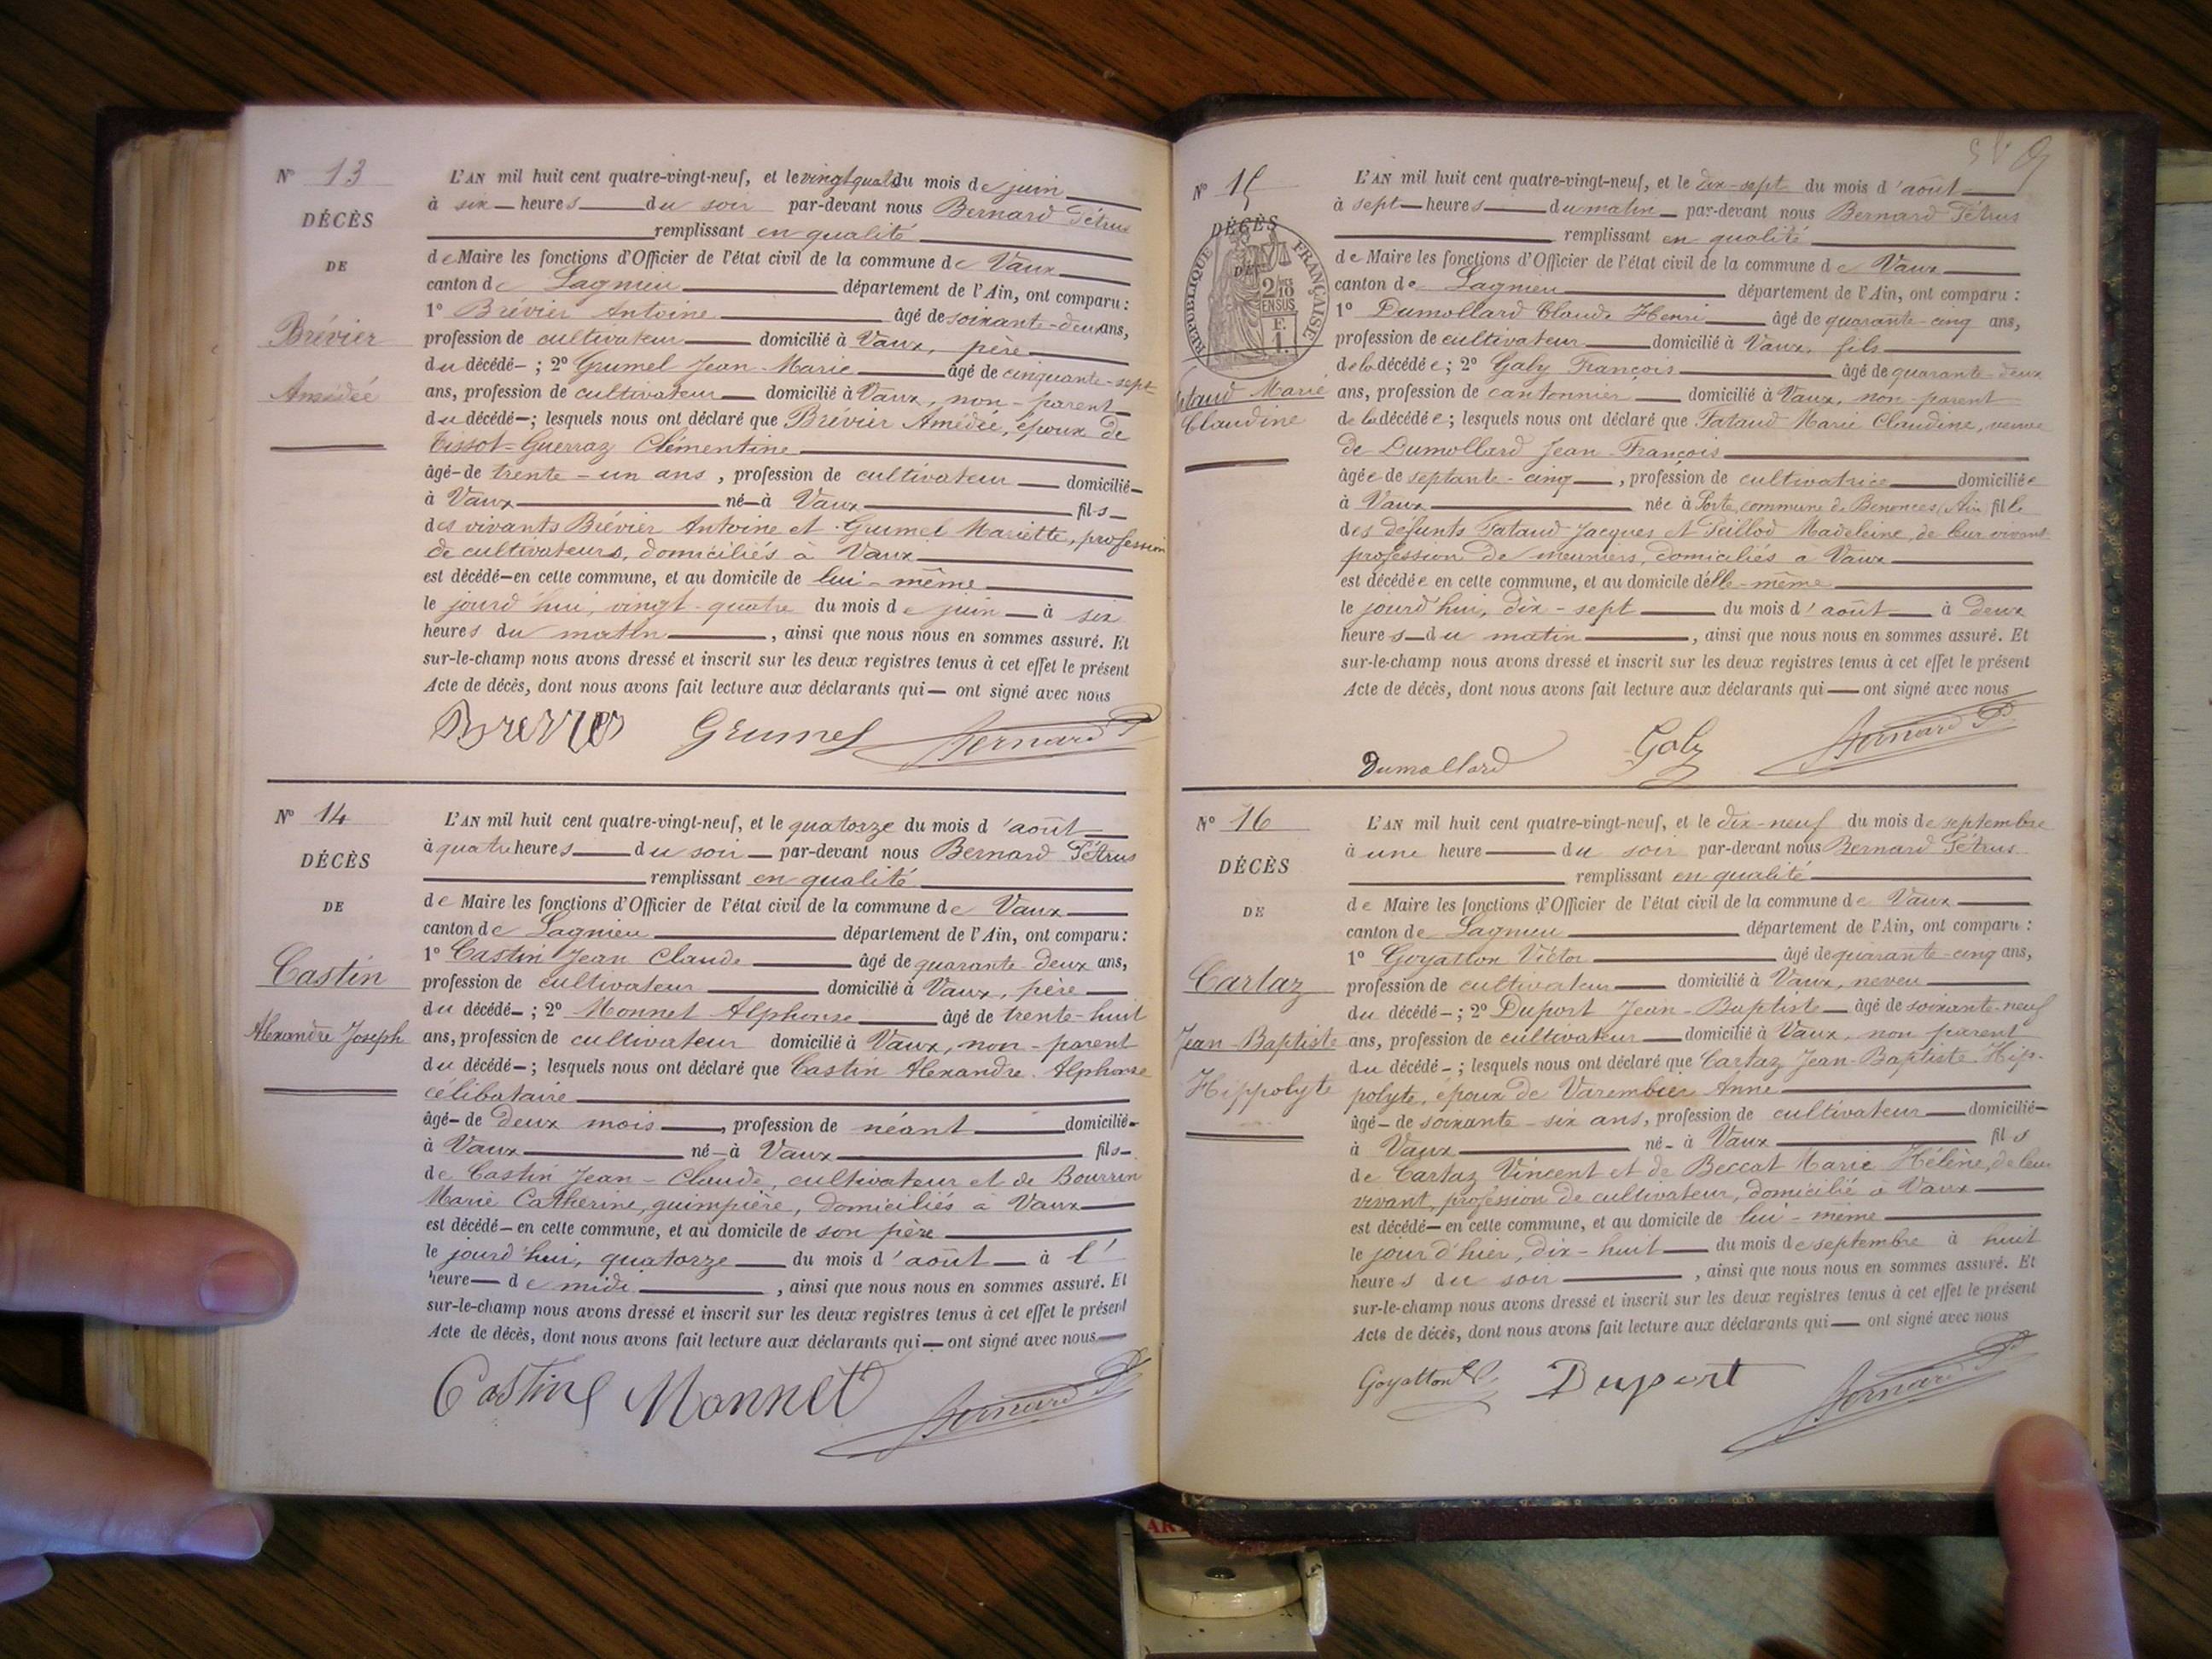 N° 13
DÉCÈS
DE
Brévier
Amédée
L'AN mil huit cent quatre-vingt-neuf, et le vingt quatre du mois de juin
à six heures du soir par-devant nous Bernard Pétrus
remplissant en qualité
de Maire les fonctions d'Officier de l'état civil de la commune de Vaux
canton de Lagnieu département de l'Ain, ont comparu :
1° Brévier Antoine âgé de soixante-deux ans,
profession de cultivateur domicilié à Vaux, père
du décédé ; 2° Grumel Jean-Marie âgé de cinquante-sept
ans, profession de cultivateur domicilié à Vaux, non-parent
du décédé ; lesquels nous ont déclaré que Brévier Amédée, époux de
Tissot-Guerraz Clémentine
âgé de trente-un ans, profession de cultivateur domicilié
à Vaux né à Vaux fils
des vivants Brévier Antoine et Grumel Mariette, profession
de cultivateurs, domiciliés à Vaux
est décédé en cette commune, et au domicile de lui-même
le jourd'hui, vingt-quatre du mois de juin à six
heures du matin, ainsi que nous nous en sommes assuré. Et
sur-le-champ nous avons dressé et inscrit sur les deux registres tenus à cet effet le présent
Acte de décès, dont nous avons fait lecture aux déclarants qui ont signé avec nous
Brevier Grumel Bernard P
N° 14
DÉCÈS
DE
Castin
Alexandre Joseph
L'AN mil huit cent quatre-vingt-neuf, et le quatorze du mois d'août
à quatre heures du soir par-devant nous Bernard Pétrus
remplissant en qualité
de Maire les fonctions d'Officier de l'état civil de la commune de Vaux
canton de Lagnieu département de l'Ain, ont comparu :
1° Castin Jean Claude âgé de quarante-deux ans,
profession de cultivateur domicilié à Vaux, père
du décédé ; 2° Monnet Alphonse âgé de trente-huit
ans, profession de cultivateur domicilié à Vaux, non-parent
du décédé ; lesquels nous ont déclaré que Castin Alexandre Alphonse
célibataire
âgé de deux mois, profession de néant domicilié
à Vaux né à Vaux fils
de Castin Jean-Claude, cultivateur et de Bourrin
Marie Catherine, guimpière, domiciliés à Vaux
est décédé en cette commune, et au domicile de son père
le jourd'hui, quatorze du mois d'août à l'
heure de midi, ainsi que nous nous en sommes assuré. Et
sur-le-champ nous avons dressé et inscrit sur les deux registres tenus à cet effet le présent
Acte de décès, dont nous avons fait lecture aux déclarants qui ont signé avec nous
Castin Monnet Bernard P
N° 15
DÉCÈS
DE
RÉPUBLIQUE FRANÇAISE
2/10
EN SUS
F.
1.
Fataud Marie
Claudine
L'AN mil huit cent quatre-vingt-neuf, et le dix-sept du mois d'août
à sept heures du matin par-devant nous Bernard Pétrus
remplissant en qualité
de Maire les fonctions d'Officier de l'état civil de la commune de Vaux
canton de Lagnieu département de l'Ain, ont comparu :
1° Dumollard Claude Henri âgé de quarante-cinq ans,
profession de cultivateur domicilié à Vaux, fils
de la décédée ; 2° Galy François âgé de quarante-deux
ans, profession de cantonnier domicilié à Vaux, non-parent
de la décédée ; lesquels nous ont déclaré que Fataud Marie Claudine, veuve
de Dumollard Jean-François
âgée de septante-cinq, profession de cultivatrice domiciliée
à Vaux née à Porte, commune de Benonces, Ain fille
des défunts Fataud Jacques et Peillod Madeleine, de leur vivant
profession de meuniers, domiciliés à Vaux
est décédée en cette commune, et au domicile d'elle-même
le jourd'hui, dix-sept du mois d'août à deux
heures du matin, ainsi que nous nous en sommes assuré. Et
sur-le-champ nous avons dressé et inscrit sur les deux registres tenus à cet effet le présent
Acte de décès, dont nous avons fait lecture aux déclarants qui ont signé avec nous
Dumollard Galy Bernard P
N° 16
DÉCÈS
DE
Cartaz
Jean-Baptiste
Hippolyte
L'AN mil huit cent quatre-vingt-neuf, et le dix-neuf du mois de septembre
à une heure du soir par-devant nous Bernard Pétrus
remplissant en qualité
de Maire les fonctions d'Officier de l'état civil de la commune de Vaux
canton de Lagnieu département de l'Ain, ont comparu :
1° Goyatton Victor âgé de quarante-cinq ans,
profession de cultivateur domicilié à Vaux, neveu
du décédé ; 2° Duport Jean-Baptiste âgé de soixante-neuf
ans, profession de cultivateur domicilié à Vaux, non parent
du décédé ; lesquels nous ont déclaré que Cartaz Jean-Baptiste Hip-
polyte, époux de Varembier Anne
âgé de soixante-six ans, profession de cultivateur domicilié
à Vaux né à Vaux fils
de Cartaz Vincent et de Beccat Marie Hélène, de leur
vivant, profession de cultivateur, domicilié à Vaux
est décédé en cette commune, et au domicile de lui-même
le jour d'hier, dix-huit du mois de septembre à huit
heures du soir, ainsi que nous nous en sommes assuré. Et
sur-le-champ nous avons dressé et inscrit sur les deux registres tenus à cet effet le présent
Acte de décès, dont nous avons fait lecture aux déclarants qui ont signé avec nous
Goyatton Duport Bernard P